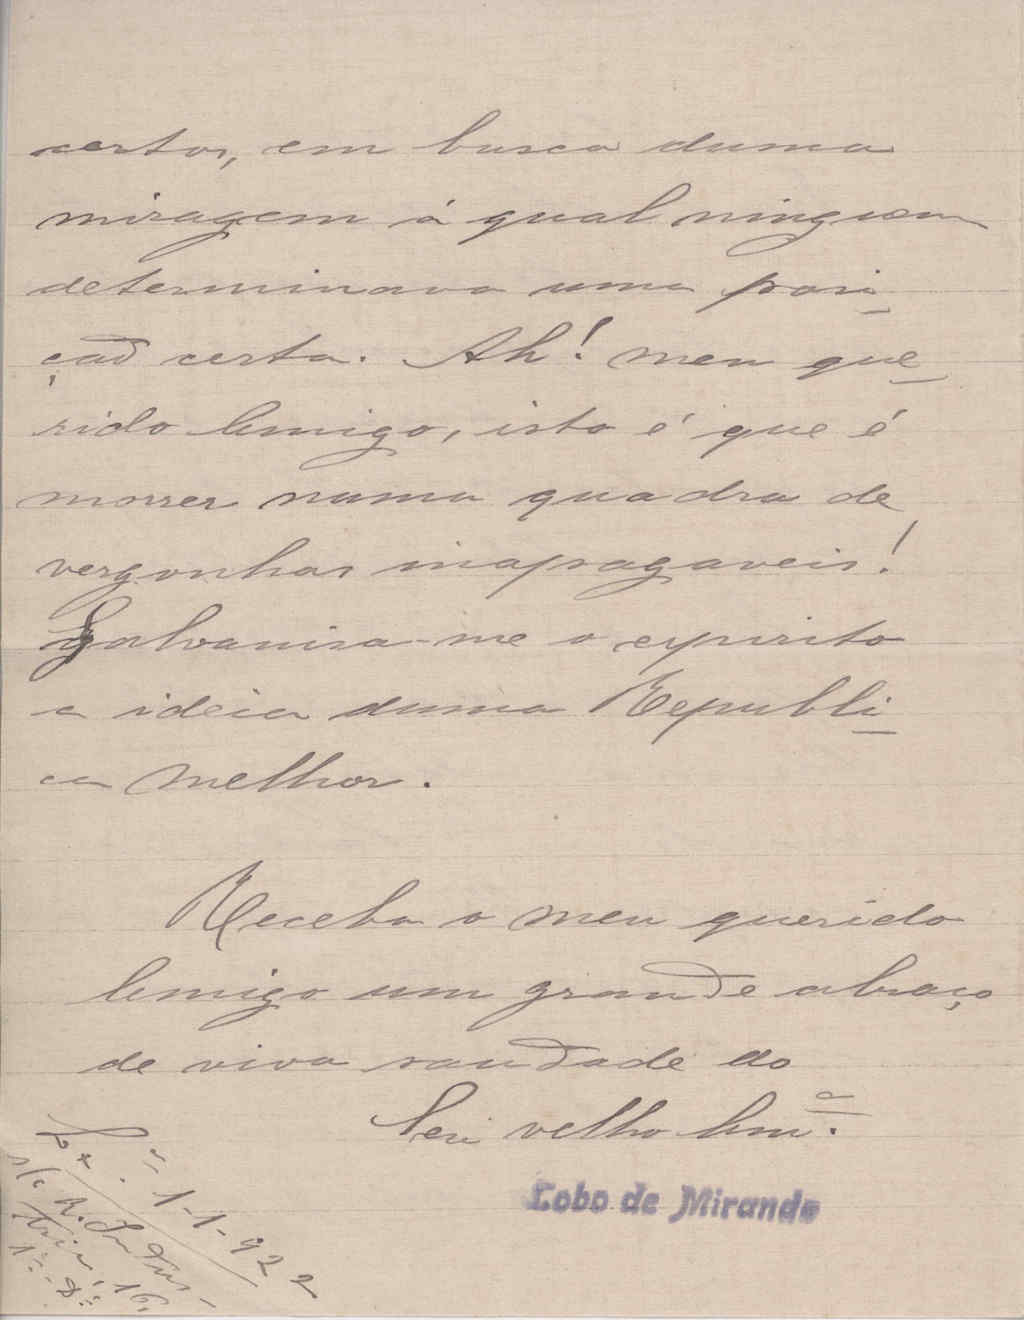 certos, em busca duma
miragem á qual ninguem
determinava uma posi-
ção certa. Ah! meu que-
rido Amigo, isto é que é
morrer numa quadra de
vergonhas inapagaveis!
Galvanisa-me o espirito
a ideia duma Republi-
ca melhor.
Receba o meu querido
Amigo um grande abraço
de viva saudade do
Seu velho Amº.
Lobo de Miranda
Lxª. 1-1-922
s/c R. Indus-
tria, 16,
1º. D.º